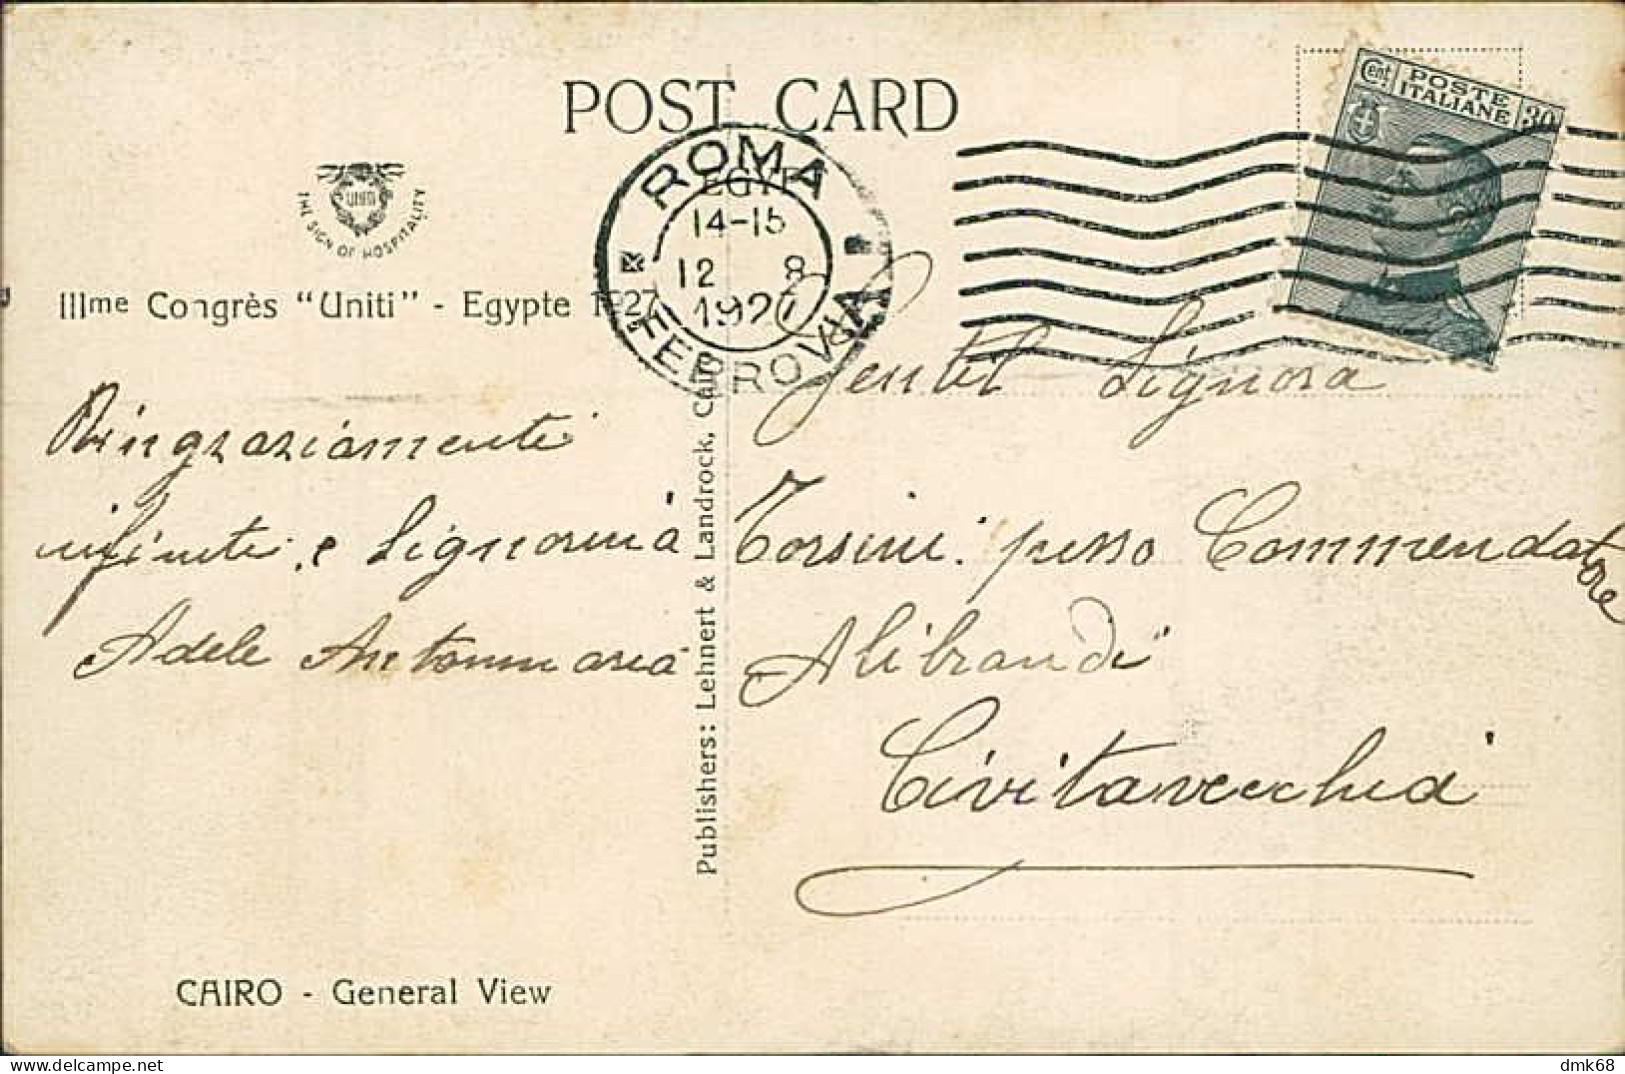 POST CARD
EGYPT
UNITI
THE SIGN OF HOSPITALITY
IIIme Congrès "Uniti" - Egypte 1927
ROMA
14-15
12 8
1927
FERROVIA
Cent. POSTE ITALIANE 30
Ringraziamenti
infiniti e Signorina
Adele Antonmaria
Publishers: Lehnert & Landrock, Cairo
Gentil Signora
Torsini presso Commendatore
Alibrandi
Civitavecchia
CAIRO - General View
dmk68